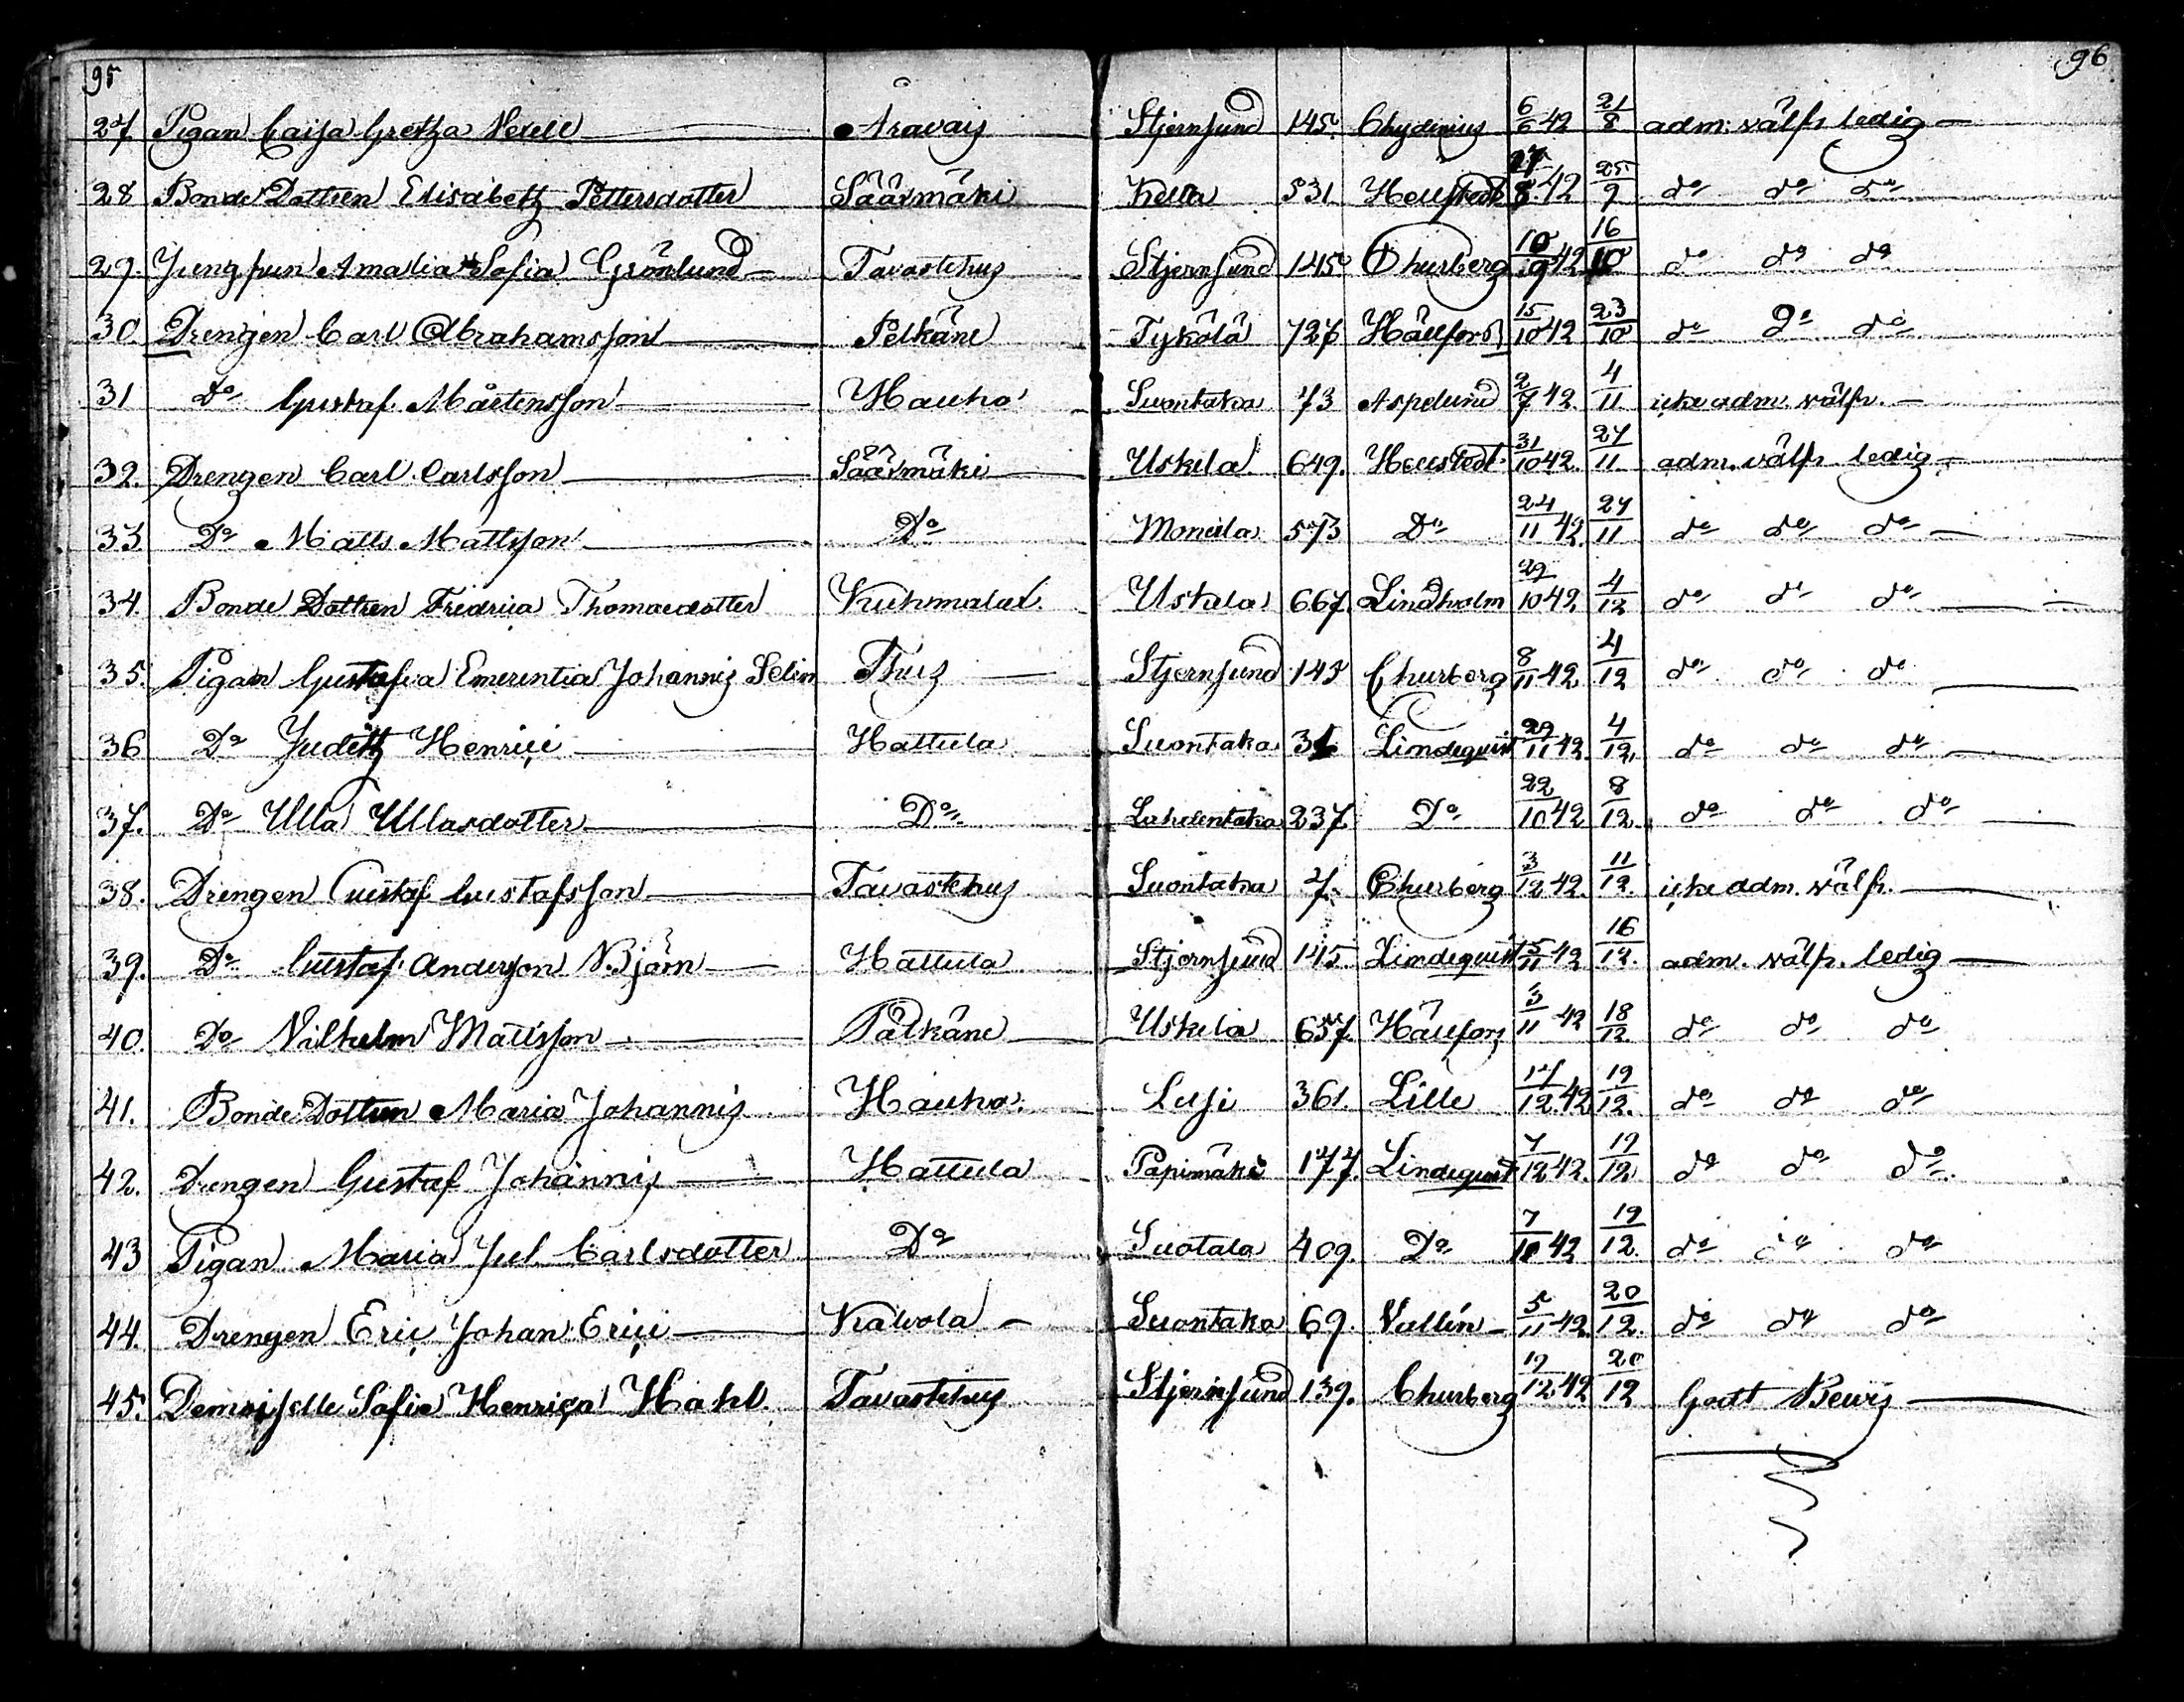 95 96
27. Pigan Caisa Gretha Vexell Aravais Stjernsund 145. Chydenius 6/6 42 21/8 adm: välfr. ledig
28 Bonde Dottren Elisabeth Pettersdotter Säärmäki Kella 531 Hellstedt 27/8. 42 25/9 do do do
29. Jungfrun Amalia Sofia Grönlund Tavastehus Stjernsund 145 Churberg 10/9 42 16/10 do do do
30. Drengen Carl Abrahamsson Pelkäne Tykölä 727 Hällfors 15/10 42 23/10 do do do
31 Do Gustaf Mårtensson Hauho Suontaka 73 Aspelund 2/7 42. 4/11. icke adm. välfr.
32. Drengen Carl Carlsson Säärmäki Uskela 649. Hellstedt 31/10 42. 27/11. adm. välfr ledig
33. Do Matts Mattsson Do Moneila 573 Do 24/11 42. 27/11 do do do
34. Bonde Dottren Fredrica Thomasdotter Kuhmalax. Uskela 667. Lindholm 29/10 42 4/12 do do do
35. Pigan Gustafva Emerentia Johannis Selin Thus Stjernsund 145 Churberg 8/11 42. 4/12 do do do
36 Do Judith Henrici Hattula Suontaka 31 Lindequist 29/11 42. 4/12. do do do
37. Do Ulla Ullasdotter Do Lahdentaka 237. Do 22/10 42 8/12. do do do
38. Drengen Gustaf Gustafsson Tavastehus Suontaka 7. Churberg 3/12 42. 11/12. icke adm. välfr.
39. Do Gustaf Andersson Björn Hattula Stjernsund 145. Lindequist 15/11 42 16/12. adm. välfr. ledig
40. Do Vilhelm Mattsson Pälkäne Uskela 657. Hällfors 3/11 42 18/12. do do do
41. Bonde Dottren Maria Johannis Hauho. Lusi 361. Lille 17/12. 42 19/12. do do do
42. Drengen Gustaf Johannis Hattula Papimäki 177. Lindequist 7/12 42. 19/12 do do do
43 Pigan Maria Jul. Carlsdotter Do Suotala 409. Do 7/10 42 19/12. do do do
44. Drengen Eric Johan Erici Kalvola Suontaka 69. Vallin 5/11 42. 20/12. do do do
45. Demoiselle Sofia Henrica Hahl. Tavastehus Stjernsund 139. Churberg 19/12 42 20/12 Godt Bewis